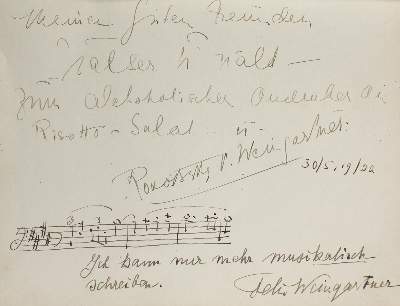 Meinen guten Freunden
Zum alchoholischen Andenken an
Risotto-Salat u.
P. Weingartner.
30/5.19/22
Ich kann nur mehr musikalisch
schreiben. Felix Weingartner